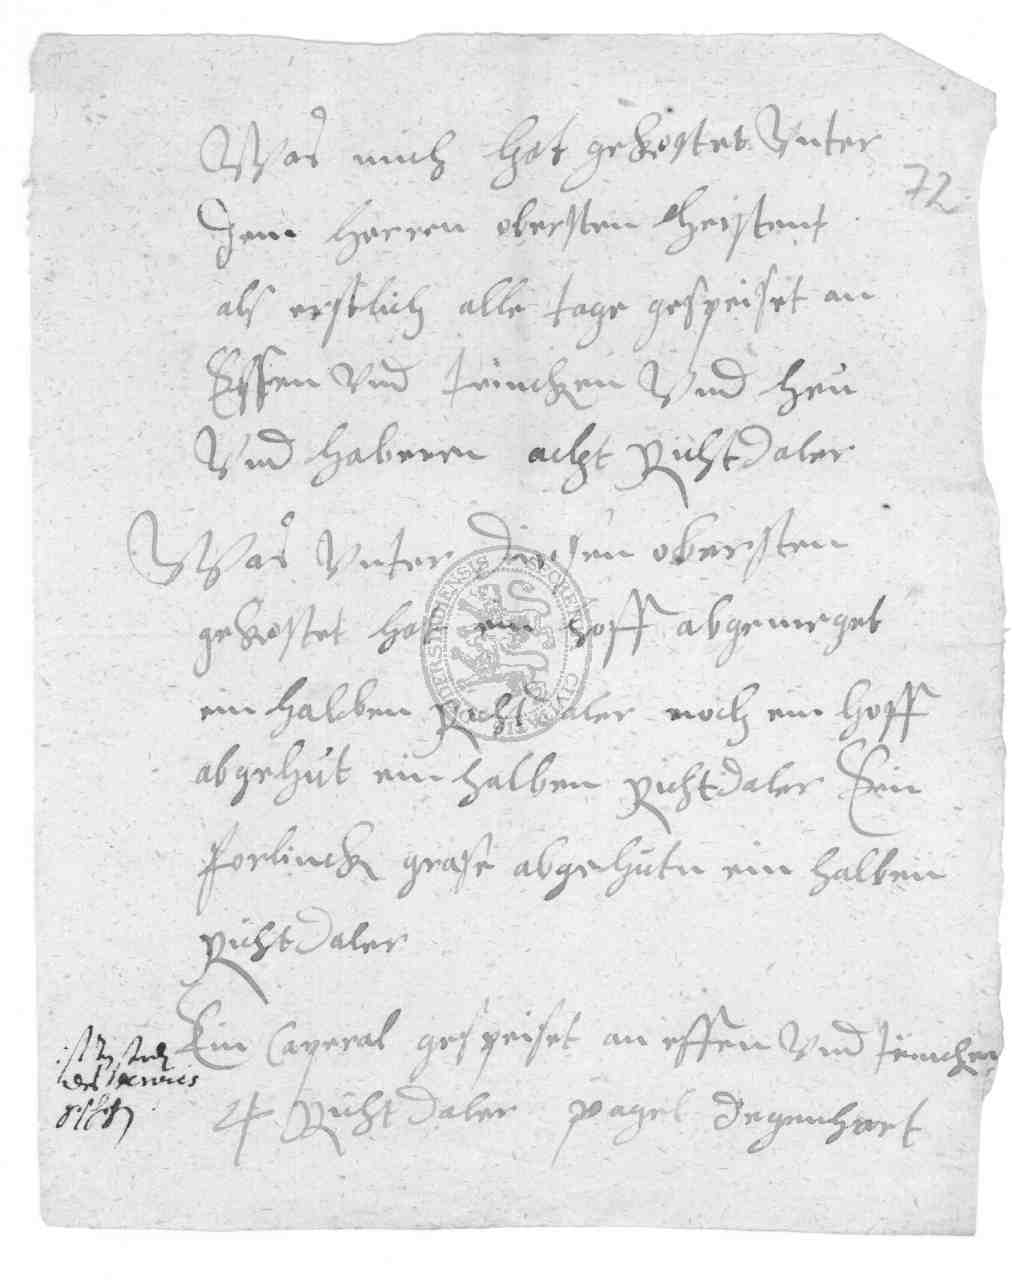 Was mich hat gekostet Vnter
72
dem Herren obersten Heistent
als erstlich alle tage gespeiset an
Essen Vnd trincken Vnd heu
Vnd haberen acht Richtdaler
Was Vnter diesen obersten
gekostet hat ein hoff abgemeget
ein halben Richtdaler noch ein hoff
abgehut ein halben Richtdaler Ein
forlinck grase abgehutn ein halben
Richtdaler
Ein Caperal gespeiset an essen Vnd trincken
4 Richtdaler pagel degenhart